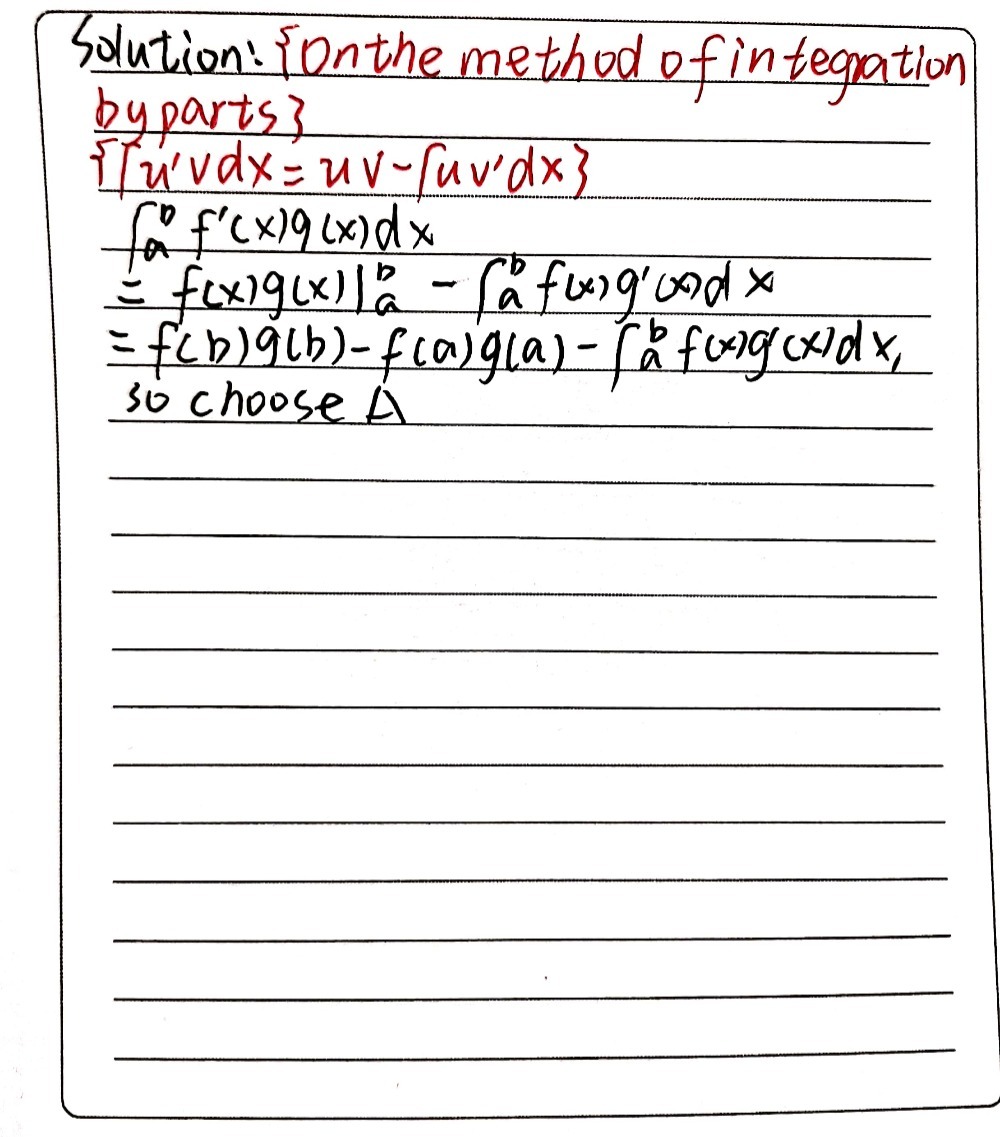 Solution: {On the method of integration
by parts}
{∫u'vdx = uv-∫uv'dx}
∫ₐᵇ f'(x)g(x)dx
= f(x)g(x)|ₐᵇ - ∫ₐᵇ f(x)g'(x)dx
= f(b)g(b)-f(a)g(a)-∫ₐᵇ f(x)g'(x)dx,
so choose A